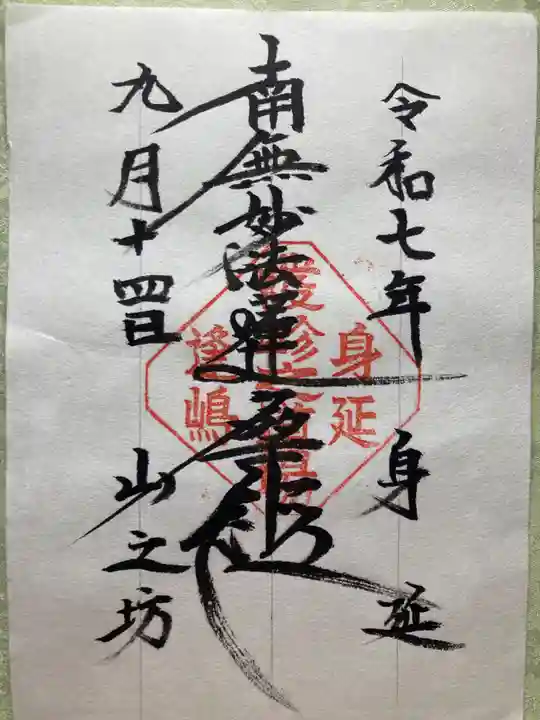 令和七年
身延
南無妙法蓮華経
九月十四日
山之坊
身延